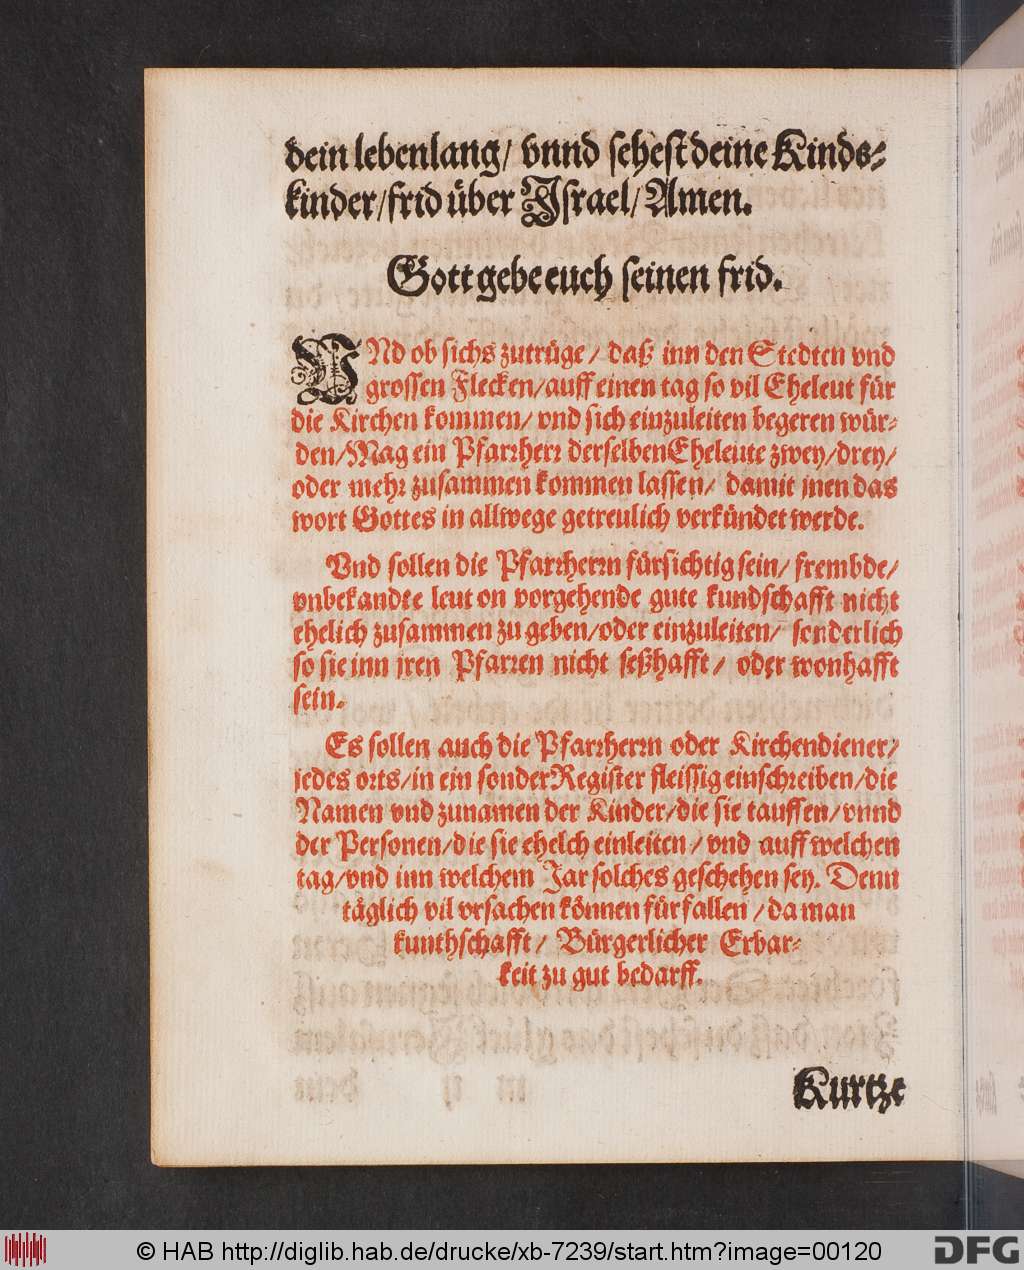 dein lebenlang/ vnnd sehest deine Kinds-
kinder/frid über Jsrael/ Amen.
Gott gebe euch seinen frid.
VNd ob sichs zutrüge/ daß inn den Stedten vnd
grossen Flecken/auff einen tag so vil Eheleut für
die Kirchen kommen/ vnd sich einzuleiten begeren wür-
den/Mag ein Pfarrherr derselben Eheleute zwey/drey/
oder mehr zusammen kommen lassen/ damit jnen das
wort Gottes in allwege getreulich verkündet werde.
Vnd sollen die Pfarrherrn fürsichtig sein/ frembde/
vnbekandte leut on vorgehende gute kundschafft nicht
ehelich zusammen zu geben/oder einzuleiten/ sonderlich
so sie inn jren Pfarren nicht seßhafft/ oder wonhafft
sein.
Es sollen auch die Pfarrherrn oder Kirchendiener/
jedes orts/in ein sonder Register fleissig einschreiben/die
Namen vnd zunamen der Kinder/die sie tauffen/vnnd
der Personen/die sie ehelch einleiten/ vnd auff welchen
tag/vnd inn welchem Jar solches geschehen sey. Denn
täglich vil vrsachen können fürfallen/da man
kunthschafft/ Bürgerlicher Erbar-
keit zu gut bedarff.
Kurtze
© HAB http://diglib.hab.de/drucke/xb-7239/start.htm?image=00120
DFG